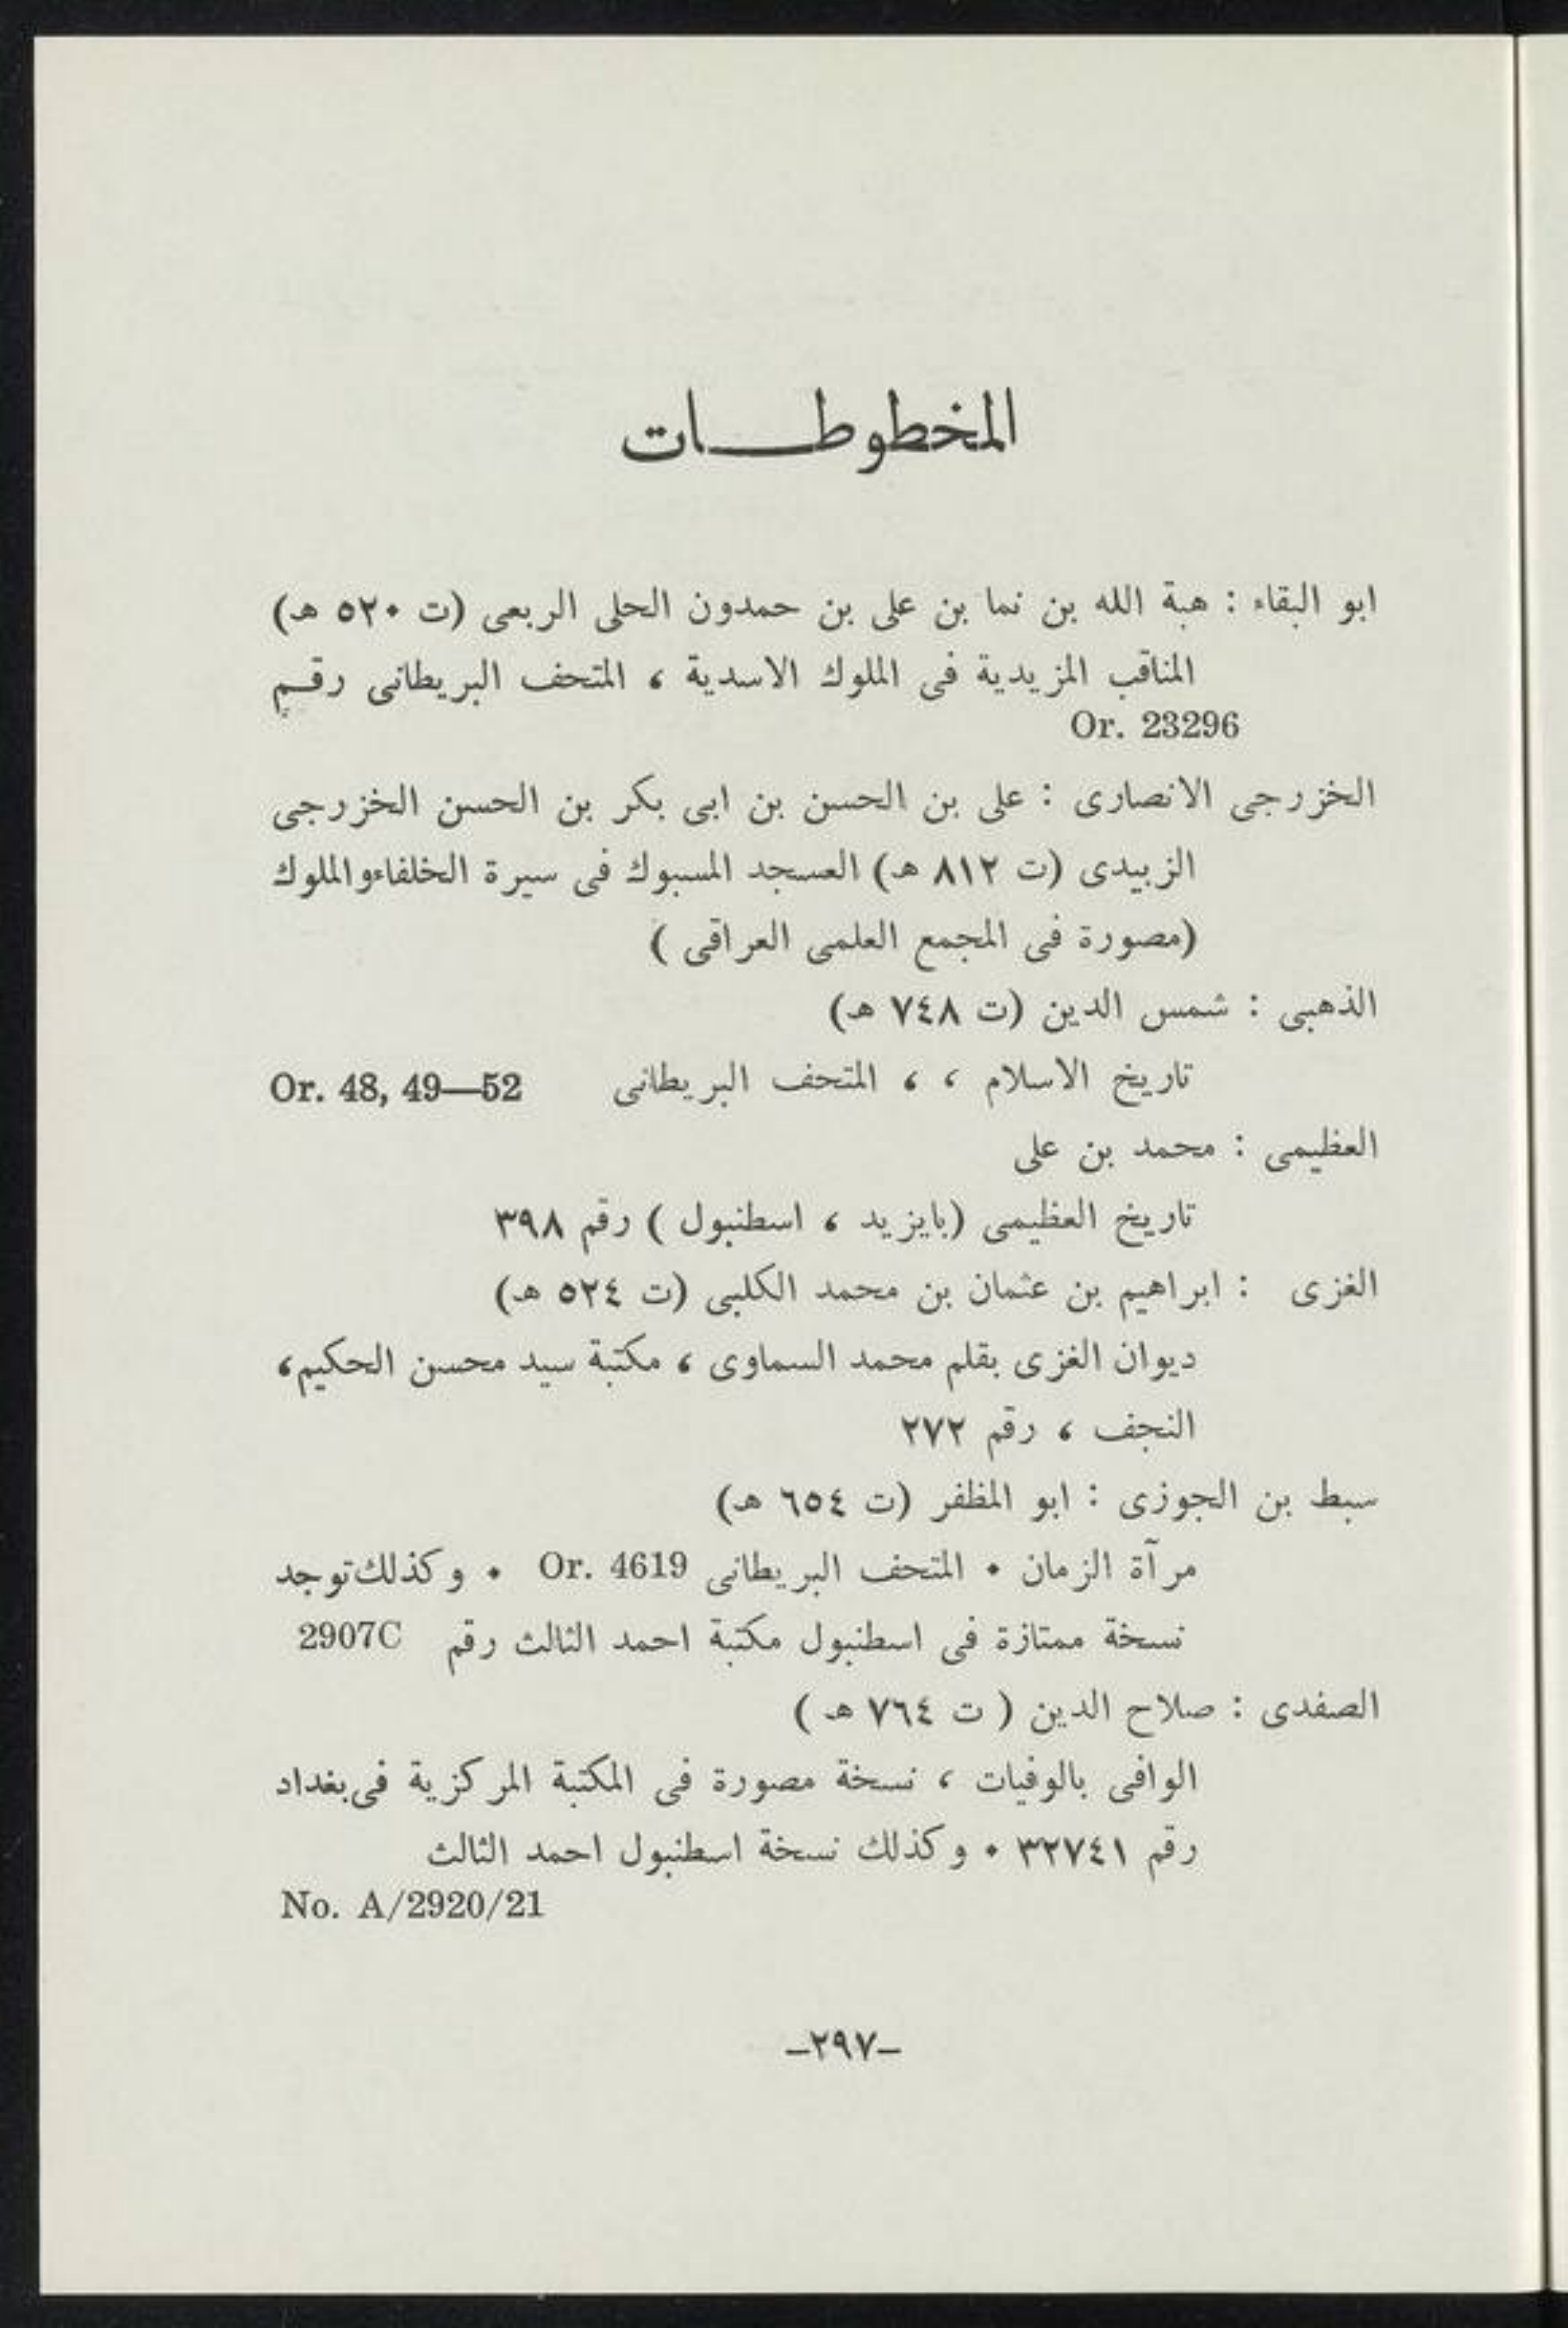 المخطوطـــات
ابو البقاء : هبة الله بن نما بن على بن حمدون الحلى الربعى (ت ٥٢٠ هـ)
المناقب المزيدية فى الملوك الاسدية ، المتحف البريطانى رقـم
Or. 23296
الخزرجى الانصارى : على بن الحسن بن ابى بكر بن الحسن الخزرجى
الزبيدى (ت ٨١٢ هـ) العسجد المسبوك فى سيرة الخلفاءوالملوك
(مصورة فى المجمع العلمى العراقى )
الذهبى : شمس الدين (ت ٧٤٨ هـ)
تاريخ الاسلام ، ، المتحف البريطانى Or. 48, 49—52
العظيمى : محمد بن على
تاريخ العظيمى (بايزيد ، اسطنبول ) رقم ٣٩٨
الغزى : ابراهيم بن عثمان بن محمد الكلبى (ت ٥٢٤ هـ)
ديوان الغزى بقلم محمد السماوى ، مكتبة سيد محسن الحكيم،
النجف ، رقم ٢٧٢
سبط بن الجوزى : ابو المظفر (ت ٦٥٤ هـ)
مرآة الزمان ٠ المتحف البريطانى Or. 4619 ٠ وكذلك توجد
نسخة ممتازة فى اسطنبول مكتبة احمد الثالث رقم 2907C
الصفدى : صلاح الدين ( ت ٧٦٤ هـ )
الوافى بالوفيات ، نسخة مصورة فى المكتبة المركزية فى بغداد
رقم ٣٢٧٤١ ٠ وكذلك نسخة اسطنبول احمد الثالث
No. A/2920/21
–٢٩٧–